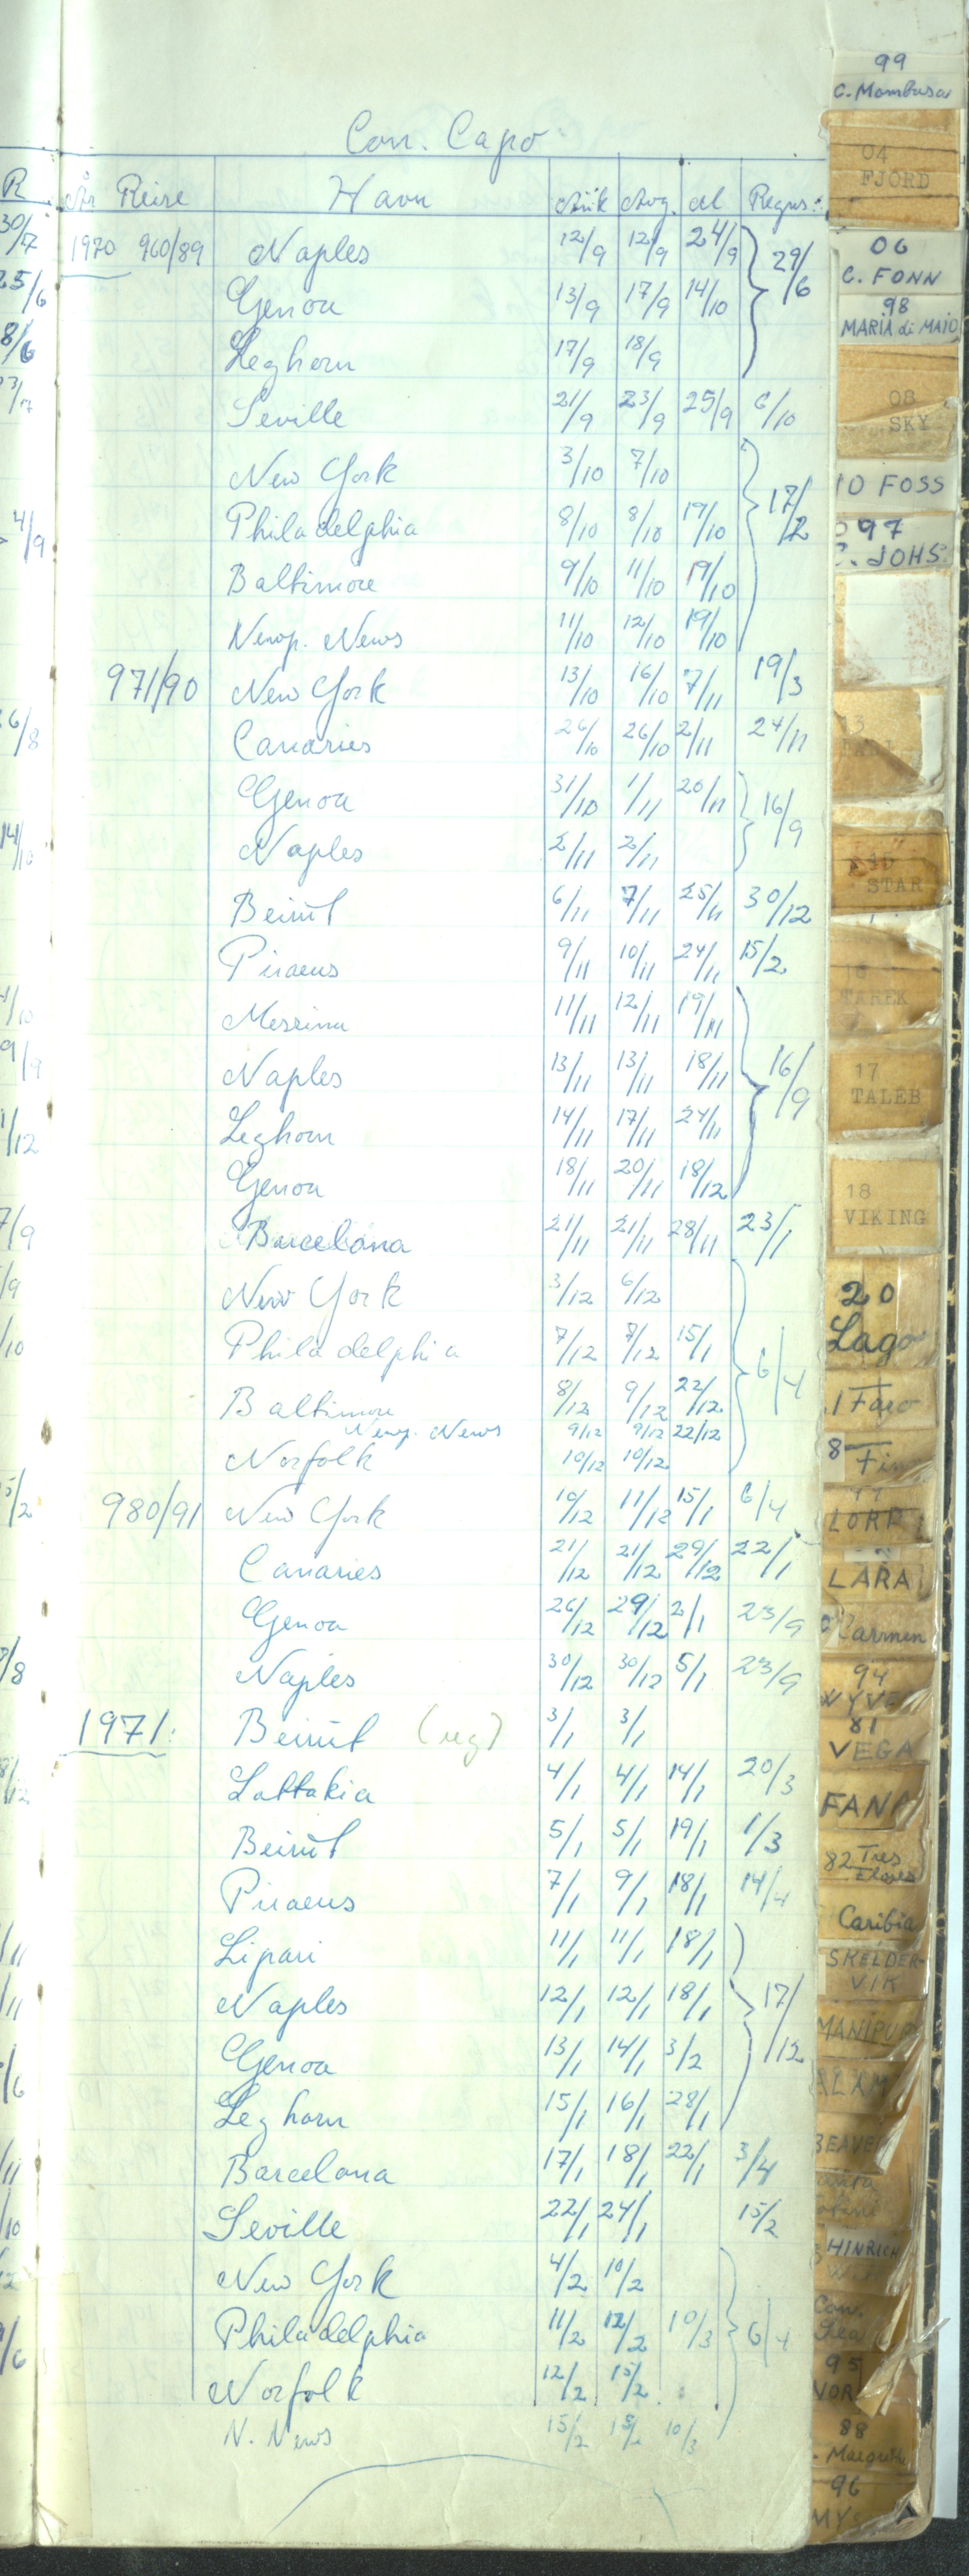 Con. Capo
År Reise Havn Ank Avg. al Regns.
1970 960/89 Naples 12/9 12/9 24/9 29/6
Genoa 13/9 17/9 14/10
Leghorn 17/9 18/9
Seville 21/9 23/9 25/9 6/10
New York 3/10 7/10
Philadelphia 8/10 8/10 19/10 17/2
Baltimore 9/10 11/10 19/10
Newp. News 11/10 12/10 19/10
971/90 New York 13/10 16/10 7/11 19/3
Canaries 26/10 26/10 2/11 24/11
Genoa 31/10 1/11 20/11 16/9
Naples 2/11 2/11
Beirut 6/11 7/11 25/11 30/12
Piraeus 9/11 10/11 24/11 15/2
Messina 11/11 12/11 19/11
Naples 13/11 13/11 18/11 16/9
Leghorn 14/11 17/11 24/11
Genoa 18/11 20/11 18/12
Barcelona 21/11 21/11 28/11 23/1
New York 3/12 6/12
Philadelphia 7/12 7/12 15/1 6/4
Baltimore 8/12 9/12 22/12
Newp. News 9/12 9/12 22/12
Norfolk 10/12 10/12
980/91 New York 10/12 11/12 15/1 6/4
Canaries 21/12 21/12 29/12 22/1
Genoa 26/12 29/12 2/1 23/9
Naples 30/12 30/12 5/1 23/9
1971: Beirut (reg) 3/1 3/1
Lattakia 4/1 4/1 14/1 20/3
Beirut 5/1 5/1 19/1 1/3
Piraeus 7/1 9/1 18/1 14/4
Lipari 11/1 11/1 18/1
Naples 12/1 12/1 18/1 17/12
Genoa 13/1 14/1 3/2
Leghorn 15/1 16/1 28/1
Barcelona 17/1 18/1 22/1 3/4
Seville 22/1 24/1 15/2
New York 4/2 10/2
Philadelphia 11/2 12/2 10/3 6/4
Norfolk 12/2 15/2
N. News 15/2 15/2 10/3
R
30/7
25/6
8/6
4/9
6/8
14/10
9/9
1/12
7/9
5/2
99
C. Mombasa
04
FJORD
06
C. FONN
98
MARIA di MAIO
08
SKY
10 FOSS
97
C. JOHS
STAR
TAREK
17
TALEB
18
VIKING
20
Lago
1 Faro
8 Fin
LORD
LARA
Carmen
94
81
VEGA
FANA
82 Tres
Flores
Caribia
SKELDER-
VIK
MANIPUR
BEAVER
HINRICH
W.H
Con.
Lea
95
88
Margrethe
96